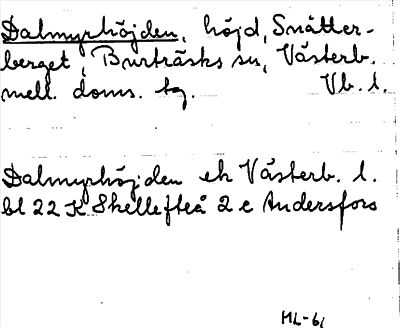 Dalmyrhöjden, höjd, Snålter-
berget i Burträsks sn, Västerb.
mell. doms. tg. Vb. l.
Dalmyrhöjden ek Västerb. l.
bl 22 K Skellefteå 2 c Andersfors
ML-61